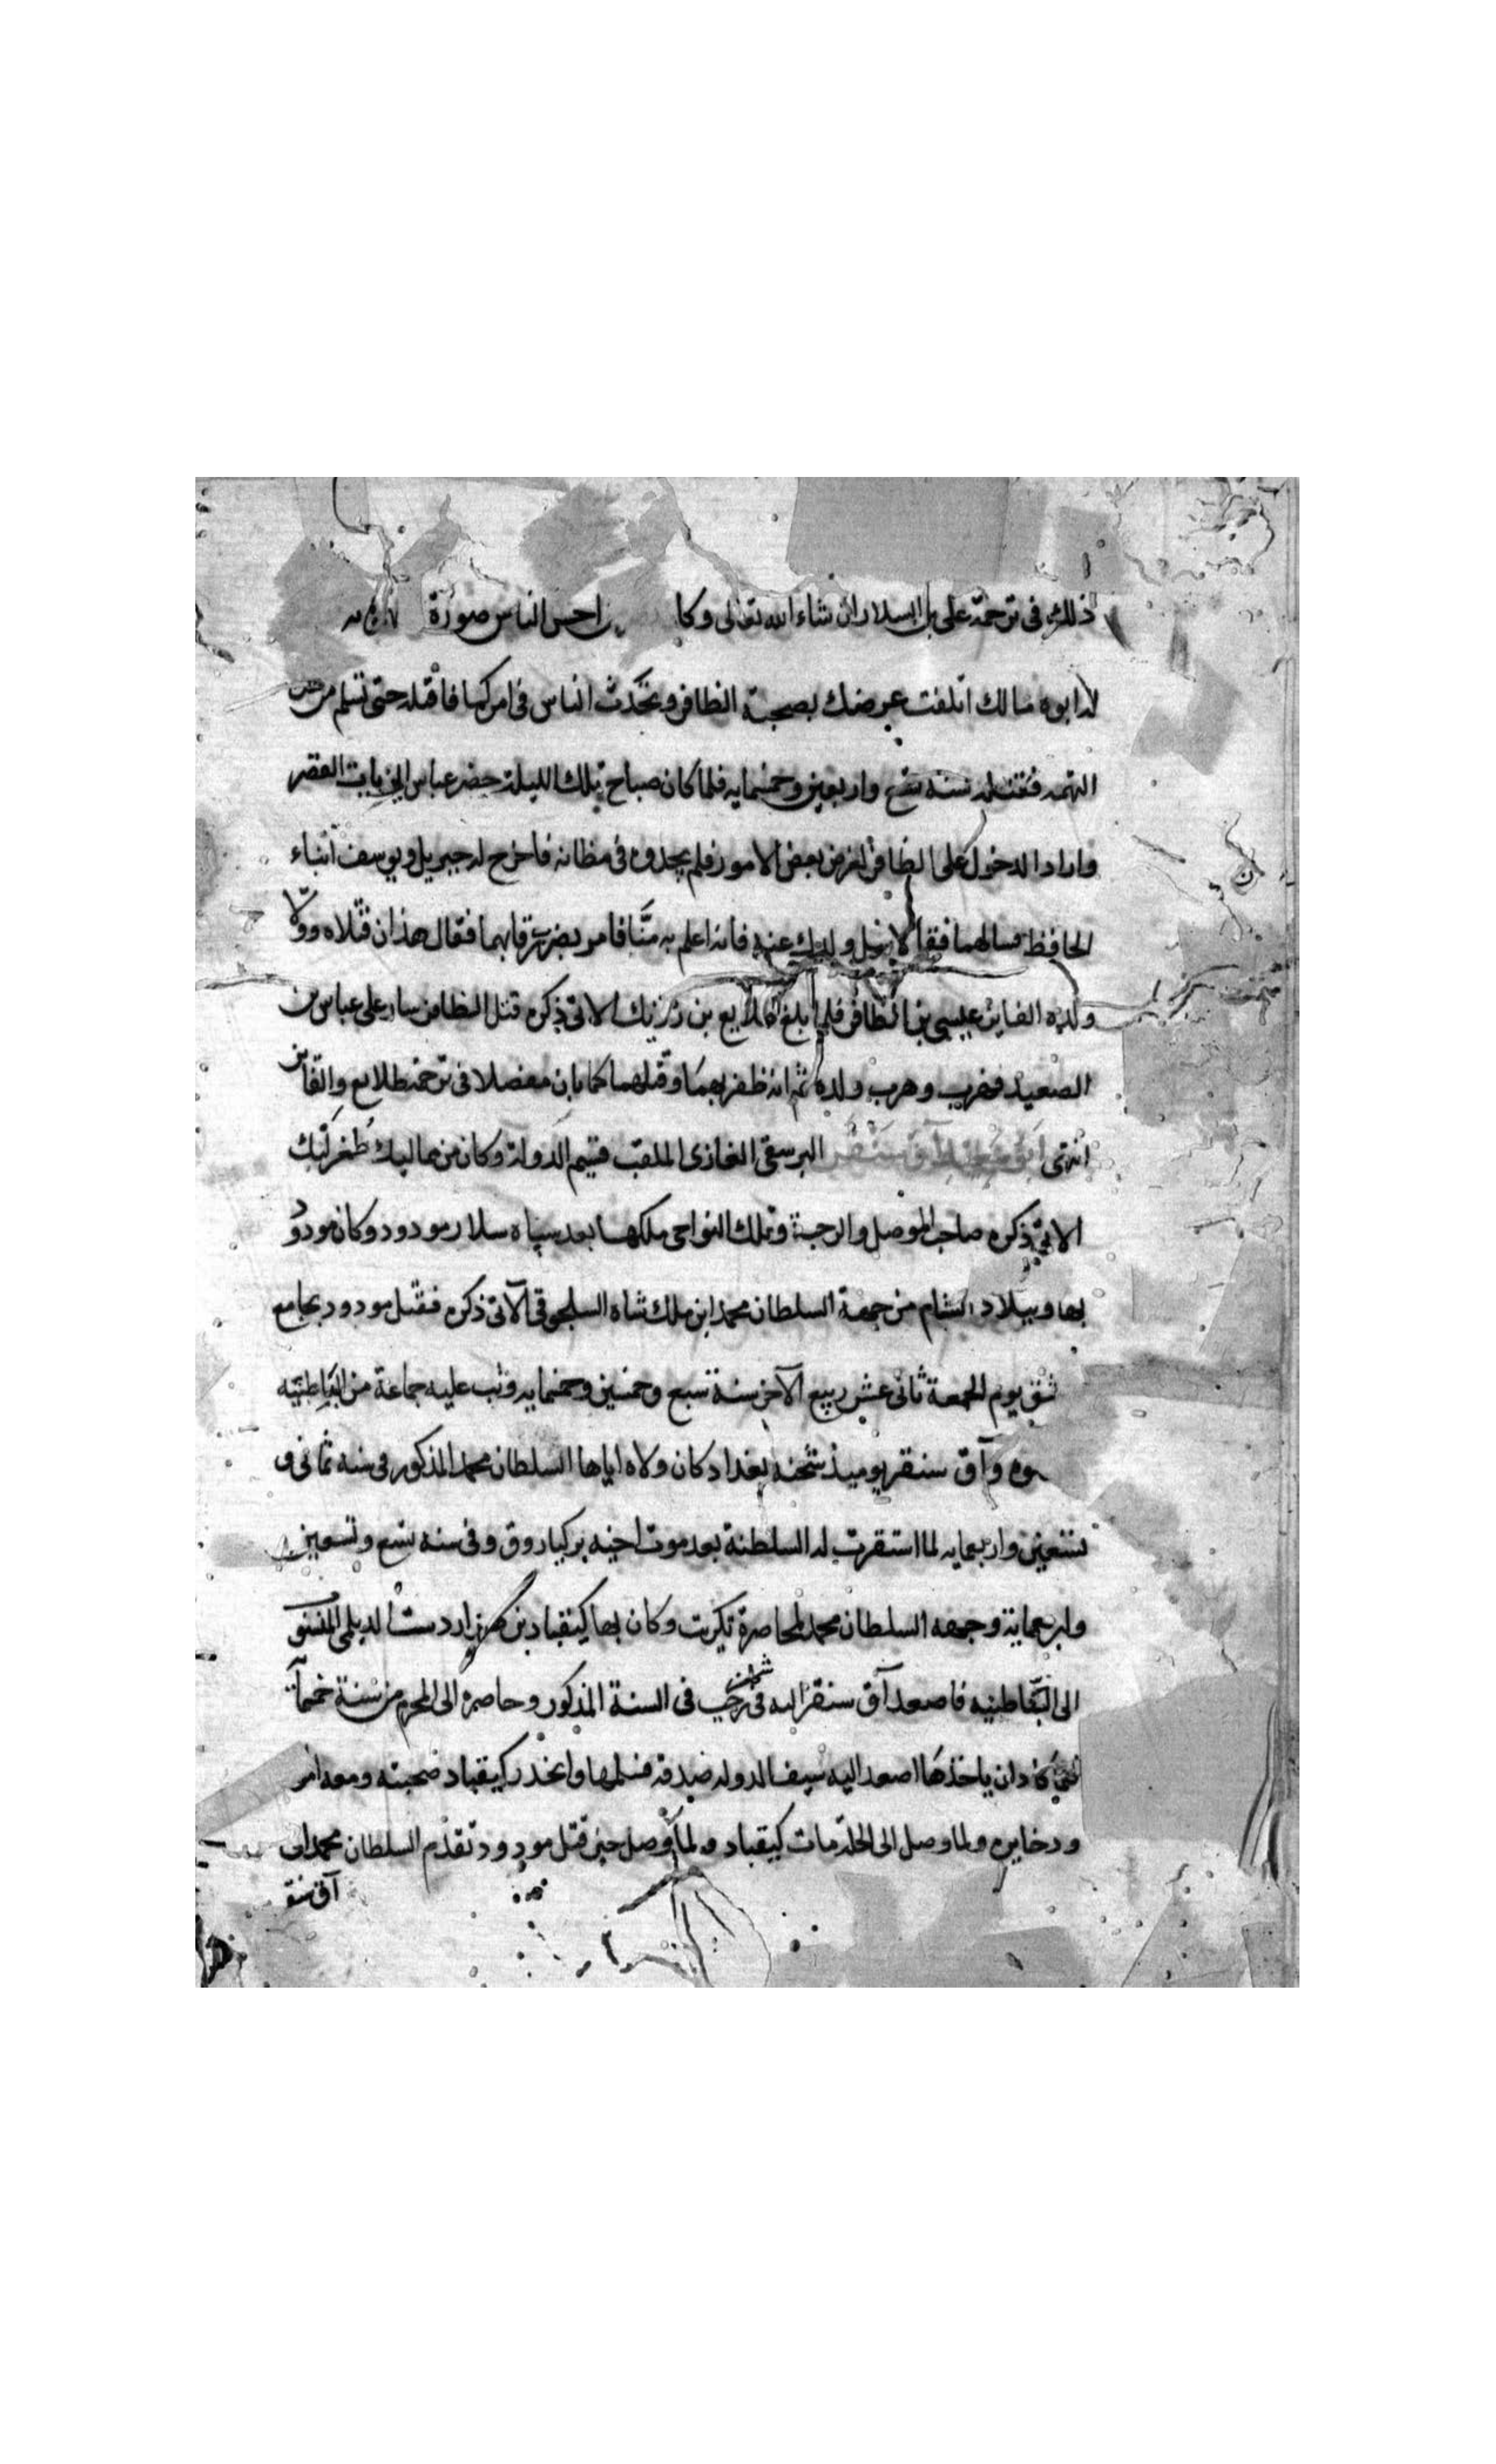 ذلك فى ترجمة على بن السلار ان شاء الله تعالى وكا احسن الناس صورة
له ابوه مالك اتلفت عرضك بصحبة الظافر وتحدث الناس فى امركما فاقتله حتى تسلم من هذه
التهمه فقتله سنه تسع واربعين وخمسمايه فلما كان صباح تلك الليلة حضر عباس الى باب القصر
واراد الدخول على الظافر لغرض بعض الامور فلم يجدوه فى مظانه فاخرج له جبريل ويوسف ابناء
الحافظ فسالهما فقالا سل ولدك عنه فانه اعلم به منا فامر بضرب رقابهما فقال هذان قتلاه وولا
ولده الفايز عيسى بن الظافر فلما بلغ طلايع بن رزيك الاتى ذكره قتل الظافر سار على عباس من
الصعيد فهرب وهرب ولده ثم انه ظفر بهما وقتلهما كما بان مفصلا فى ترجمة طلايع والفايز
انتهى ابو سعيد آق سنقر البرسقى الغازى الملقب قسيم الدولة وكان من مماليك طغرلبك
الاتى ذكره صاحب الموصل والرحبة وتلك النواحى ملكها بعد سپاه سلار مودود وكان مودود
بها وببلاد الشام من جهة السلطان محمد ابن ملك شاه السلجوقى الآتى ذكره فقتل مودود بجامع
شق يوم الجمعة ثانى عشر ربيع الآخر سنة سبع وخمسين وخمسمايه وثب عليه جماعة من الباطنيه
وه وآق سنقر يوميذ شحنه بغداد كان ولاه اياها السلطان محمد المذكور فى سنه ثمانى و
تسعين واربعمايه لما استقرت له السلطنة بعد موت اخيه بركياروق وفى سنه تسع وتسعين
واربعماية وجهه السلطان محمد لمحاصرة تكريت وكان بها كيقباد بن هزاردست الديلمى المنسو
الى الباطنيه فاصعد آق سنقر اليه فى رجب فى السنة المذكور وحاصره الى المحرم من سنة خمسمآ
فلما كاد ان ياخذها اصعد اليه سيف الدوله صدقه فتسلمها وانحدر كيقباد صحبته ومعه امو
وذخايره ولما وصل الى الحلة مات كيقباد ولما وصل خبر قتل مودود تقدم السلطان محمد الى
آق سنقر